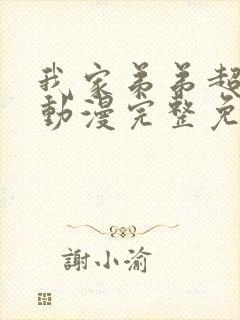 我家弟弟超
動漫完整免
謝小渝